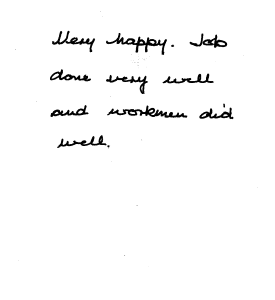 Very happy. Job
done very well
and workmen did
well.